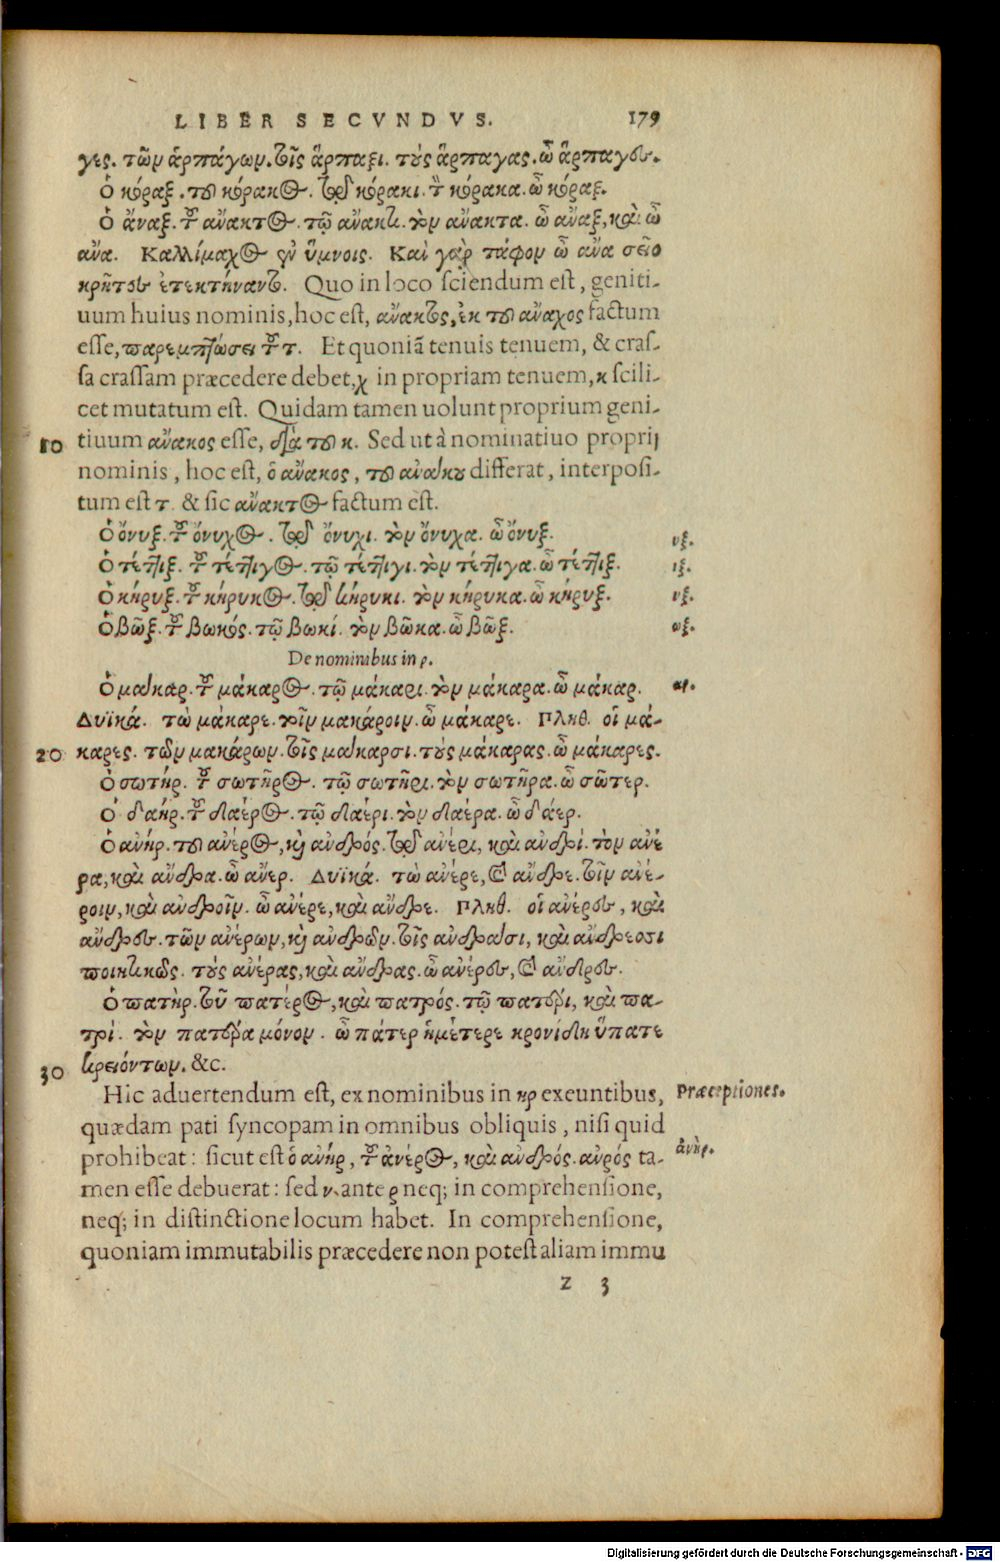 LIBER SECVNDVS. 179
γες. τῶν ἁρπάγων. τοῖς ἅρπαξι. τοὺς ἅρπαγας. ὦ ἅρπαγες.
Ὁ κόραξ. τοῦ κόρακος. τῷ κόρακι. τὸν κόρακα. ὦ κόραξ.
Ὁ ἄναξ. τοῦ ἄνακτος. τῷ ἄνακτι. τὸν ἄνακτα. ὦ ἄναξ, καὶ ὦ
ἄνα. Καλλίμαχος ἐν ὕμνοις. Καὶ γὰρ τάφον ὦ ἄνα σεῖο
κρῆτες ἐτεκτήναντο. Quo in loco sciendum est, geniti-
uum huius nominis, hoc est, ἄνακτος, ἐκ τοῦ ἄναχος factum
esse, παρεμπτώσει τοῦ τ. Et quoniã tenuis tenuem, & cras-
sa crassam præcedere debet, χ in propriam tenuem, κ scili-
cet mutatum est. Quidam tamen uolunt proprium geni-
10 tiuum ἄνακος esse, διὰ τοῦ κ. Sed ut à nominatiuo proprij
nominis, hoc est, ὁ ἄνακος, τοῦ ἀνάκου differat, interposi-
tum est τ. & sic ἄνακτος factum est.
Ὁ ὄνυξ. τοῦ ὄνυχος. τῷ ὄνυχι. τὸν ὄνυχα. ὦ ὄνυξ. υξ.
Ὁ τέττιξ. τοῦ τέττιγος. τῷ τέττιγι. τὸν τέττιγα. ὦ τέττιξ. ιξ.
Ὁ κήρυξ. τοῦ κήρυκος. τῷ κήρυκι. τὸν κήρυκα. ὦ κήρυξ. υξ.
Ὁ βῶξ. τοῦ βωκός. τῷ βωκί. τὸν βῶκα. ὦ βῶξ. ωξ.
De nominibus in ρ.
Ὁ μάκαρ. τοῦ μάκαρος. τῷ μάκαρι. τὸν μάκαρα. ὦ μάκαρ. αρ.
Δυϊκά. τὼ μάκαρε. τοῖν μακάροιν. ὦ μάκαρε. Πληθ. οἱ μά-
20 καρες. τῶν μακάρων. τοῖς μάκαρσι. τοὺς μάκαρας. ὦ μάκαρες.
Ὁ σωτήρ. τοῦ σωτῆρος. τῷ σωτῆρι. τὸν σωτῆρα. ὦ σῶτερ.
Ὁ δαήρ. τοῦ δαέρος. τῷ δαέρι. τὸν δαέρα. ὦ δάερ.
Ὁ ἀνήρ. τοῦ ἀνέρος, καὶ ἀνδρός. τῷ ἀνέρι, καὶ ἀνδρί. τὸν ἀνέ
ρα, καὶ ἄνδρα. ὦ ἄνερ. Δυϊκά. τὼ ἀνέρε, καὶ ἄνδρε. τοῖν ἀνέ-
ροιν, καὶ ἀνδροῖν. ὦ ἀνέρε, καὶ ἄνδρε. Πληθ. οἱ ἀνέρες, καὶ
ἄνδρες. τῶν ἀνέρων, καὶ ἀνδρῶν. τοῖς ἀνδράσι, καὶ ἄνδρεσσι
ποιητικῶς. τοὺς ἀνέρας, καὶ ἄνδρας. ὦ ἀνέρες, καὶ ἄνδρες.
Ὁ πατὴρ. τοῦ πατέρος, καὶ πατρός. τῷ πατέρι, καὶ πα-
τρὶ. τὸν πατέρα μόνον. ὦ πάτερ ἡμέτερε κρονίδη ὕπατε
30 κρειόντων. &c.
Hic aduertendum est, ex nominibus in ηρ exeuntibus, Præceptiones.
quædam pati syncopam in omnibus obliquis, nisi quid
prohibeat: sicut est ὁ ἀνήρ, τοῦ ἀνέρος, καὶ ἀνδρός. ἀνρός ta- ἀνὴρ.
men esse debuerat: sed ν ante ρ neq; in comprehensione,
neq; in distinctione locum habet. In comprehensione,
quoniam immutabilis præcedere non potest aliam immu
Z 3
Digitalisierung gefördert durch die Deutsche Forschungsgemeinschaft - DFG